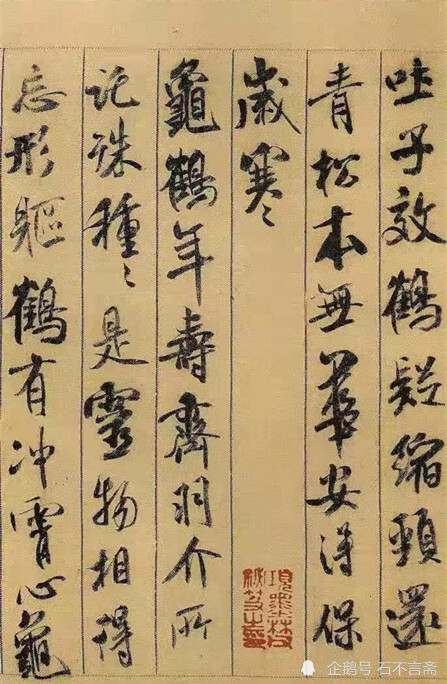 吐子效鶴疑縮頸還
青松本無華安得保
歲寒
龜鶴年壽齊羽介所
託殊種〻是靈物相得
忘形軀鶴有冲霄心龜
項墨林父
秘笈之印
企鹅号 石不言斋